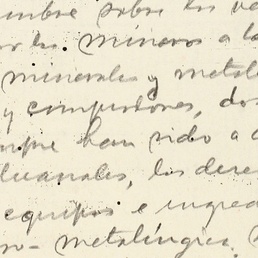 umbre sobre los va
por los mineros a la
minerales y metale
y compradores, dos
mpre han sido a
duanales, los dere
equipos e ingred
ro-metalúrgica.